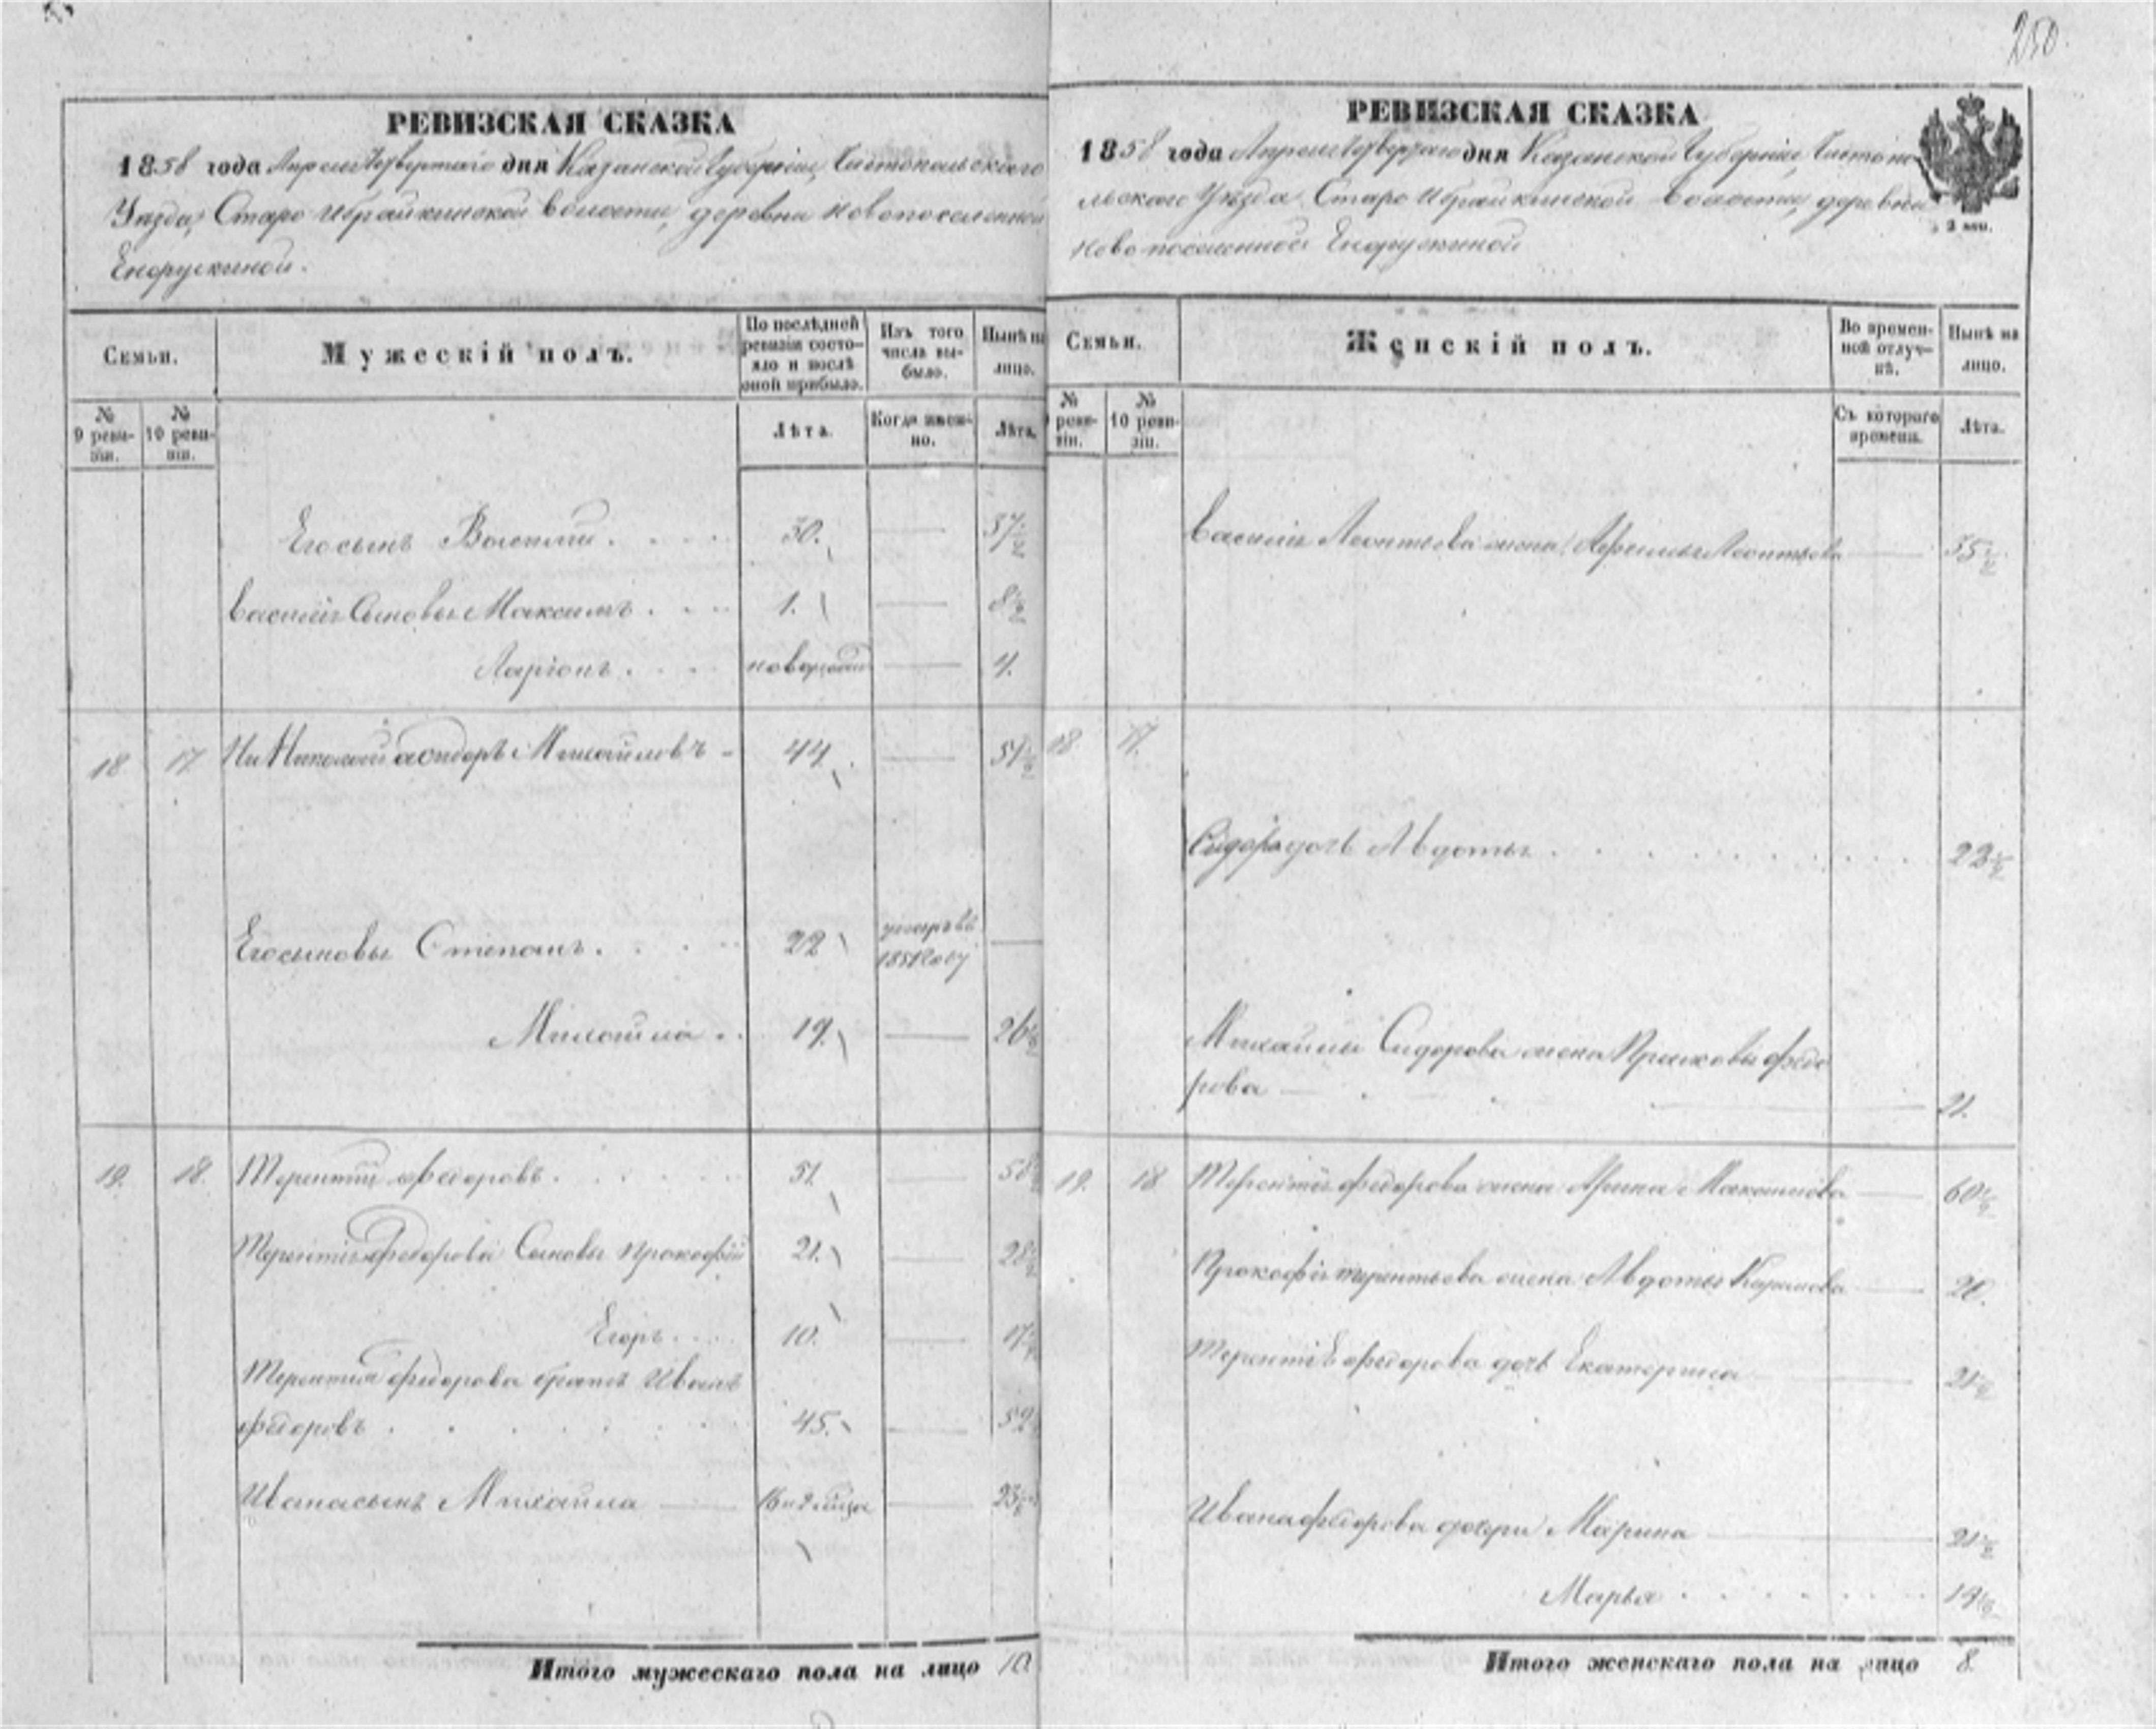 250.
РЕВИЗСКАЯ СКАЗКА
1858 года Апреля Четвертаго дня Казанской Губерніи, Чистопольскаго
Уезда, Старо Ибрайкинской волости, деревни Новопоселенной
Енорускиной.
Семьи.
Мужескій полъ.
По послѣдней ревизіи состояло и послѣ оной прибыло.
Изъ того числа выбыло.
Нынѣ на лицо.
№ 9 ревизіи.
№ 10 ревизіи.
Лѣта.
Когда именно.
Лѣта.
Его сынъ Василій. 30. 37½
Василія Сыновья Максимъ. 1. 8½
Ларіонъ. новорожд 4.
18. 17. Николай Сидоръ Михайловъ 44. 51½
Его сыновья Степанъ. 22 умеръ въ 1851 году
Михайла. 19. 26½
19. 18. Терентій Федоровъ. 51. 58½
Терентія Федорова Сыновья Прокофій 21. 28½
Егоръ. 10. 17½
Терентія Федорова братъ Иванъ
Федоровъ 45. 52½
Ивана сынъ Михайла 23½
Итого мужескаго пола на лицо 10.
РЕВИЗСКАЯ СКАЗКА
1858 года Апреля Четвертаго дня Казанской Губерніи, Чистопо-
льскаго Уезда Старо Ибрайкинской волости, деревни
Ново поселенной Енорускиной
2 коп.
Семьи.
Женскій полъ.
Во временной отлучкѣ.
Нынѣ на лицо.
№ 9 ревизіи.
№ 10 ревизіи.
Съ котораго времени.
Лѣта.
Василія Леонтьева жена Леонтьева 35½
18. 17.
Сидора дочь Авдотья 22½
Михайлы Сидорова жена Прасковья Федо
рова 21.
19. 18. Терентія Федорова жена Арина Максимова 60½
Прокофія Терентьева жена Авдотья 20.
Терентія Федорова дочь Екатерина 21½
Ивана Федорова дочери Марина 21½
Марья 19½
Итого женскаго пола на лицо 8.